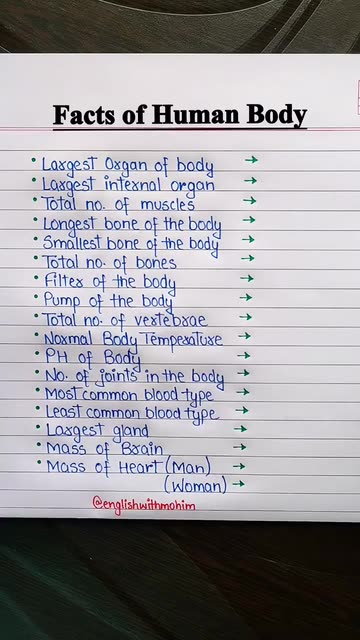 Facts of Human Body
• Largest Organ of body →
• Largest internal organ →
• Total no. of muscles →
• Longest bone of the body →
• Smallest bone of the body →
• Total no. of bones →
• Filter of the body →
• Pump of the body →
• Total no. of vertebrae →
• Normal Body Temperature →
• PH of Body →
• No. of joints in the body →
• Most common blood type →
• Least common blood type →
• Largest gland →
• Mass of Brain →
• Mass of Heart (Man) →
(Woman) →
@englishwithmohim